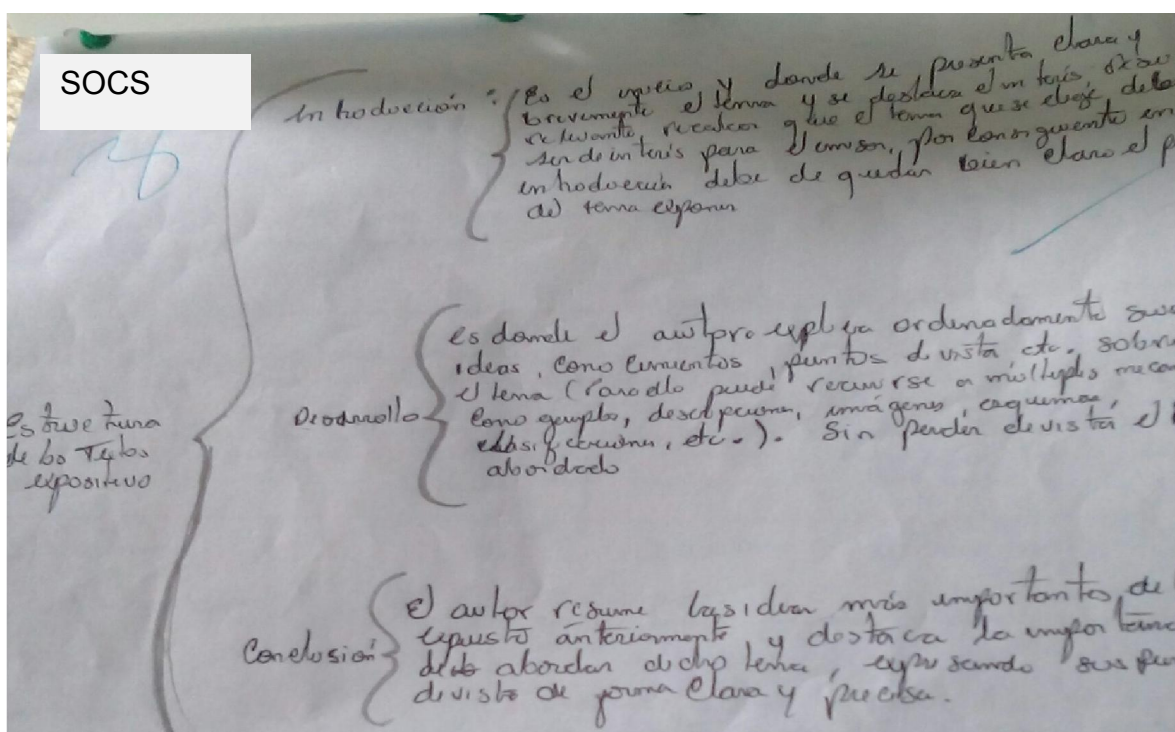 SOCS
Introducción : Es el inicio y donde se presenta clara y
brevemente el tema y se destaca el interés,
relevante, recalcar que el tema que se elegí debe
ser de interés para el emisor, por consiguiente en
introducción debe de quedar bien claro el p
del tema exponer
es donde el autpro explica ordenadamente sus
ideas, conocimientos, puntos de vista, etc. sobre
el tema (Para ello puede recurirse a múltiples meca
Desarrollo como ejemplo, descripciones, imágenes, esquemas,
clasificaciones, etc.). Sin perder de vista el
abordado
Estructura
de los Textos
expositivo
El autor resume las ideas más importantes de
expuesto anteriormente, y destaca la importanc
Conclusión debe abordar dicho tema, expresando sus pu
de vista de forma clara y precisa.